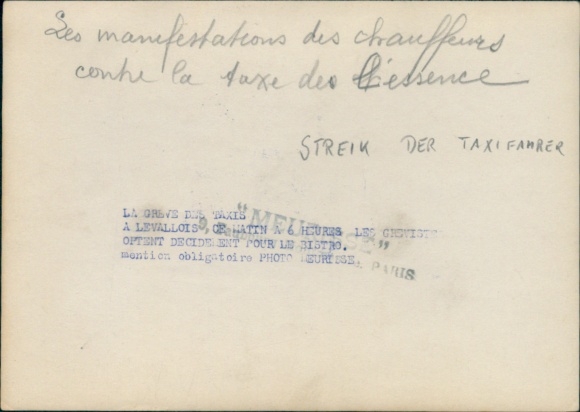 Les manifestations des chauffeurs
contre la taxe des l'essence
STREIK DER TAXIFAHRER
LA GREVE DES TAXIS
A LEVALLOIS, CE MATIN A 6 HEURES LES GREVISTES
OPTENT DECIDEMENT POUR LE BISTRO.
mention obligatoire PHOTO MEURISSE.
"MEURISSE"
PARIS